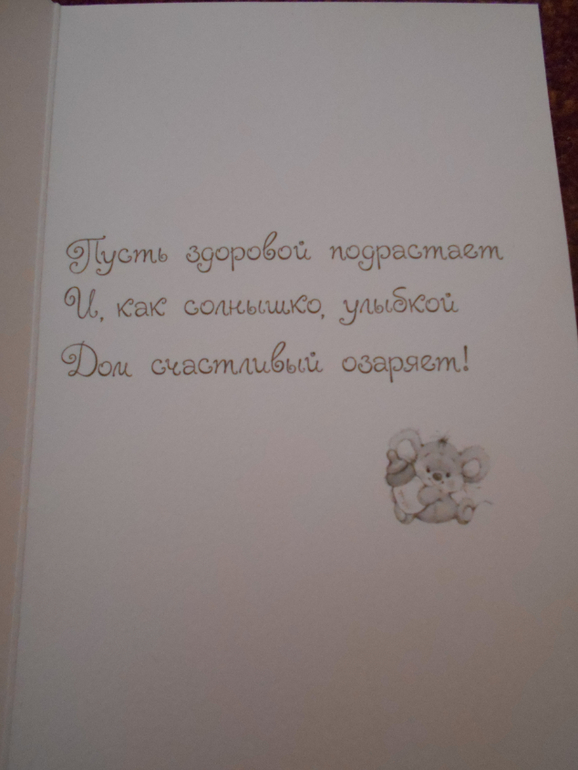 Пусть здоровой подрастает
И, как солнышко, улыбкой
Дом счастливый озаряет!